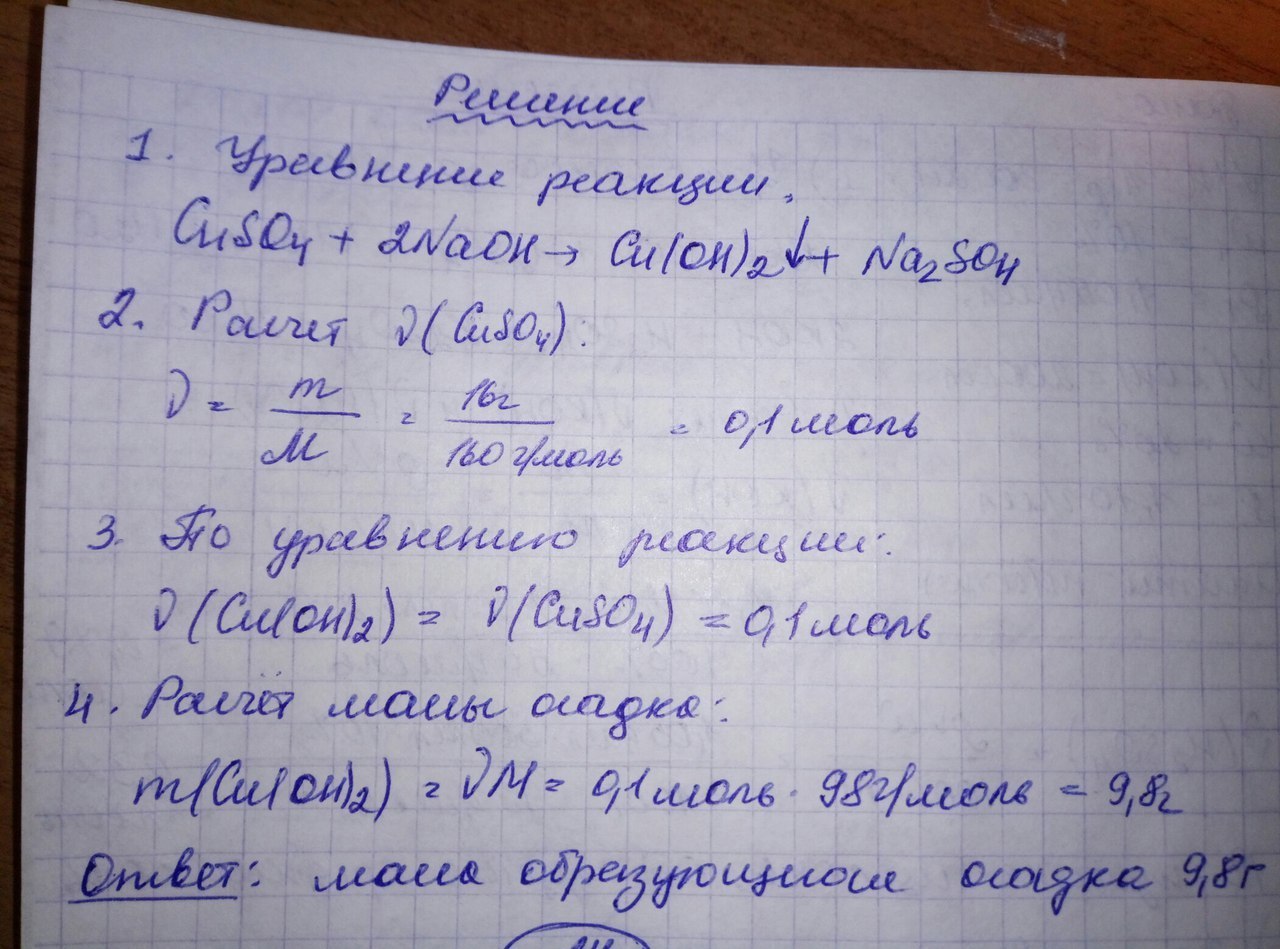 Решение
1. Уравнение реакции.
CuSO4 + 2NaOH → Cu(OH)2↓ + Na2SO4
2. Расчет ν(CuSO4):
ν = m/M = 16г/160 г/моль = 0,1 моль
3. По уравнению реакции:
ν(Cu(OH)2) = ν(CuSO4) = 0,1 моль
4. Расчёт массы осадка:
m(Cu(OH)2) = νM = 0,1 моль · 98 г/моль = 9,8г
Ответ: масса образующегося осадка 9,8г